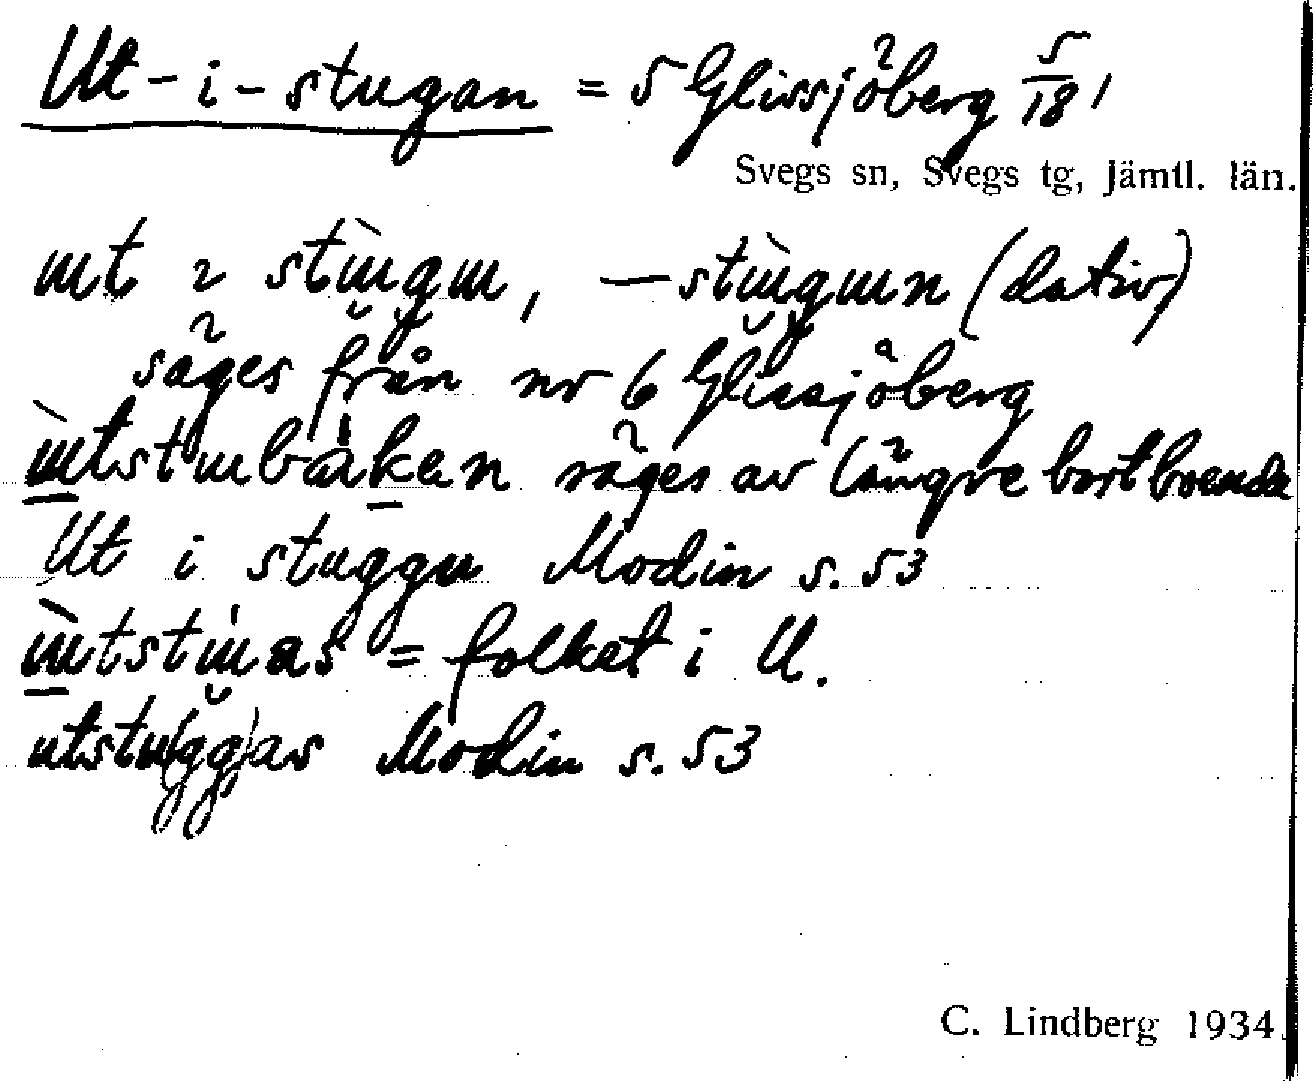 Ut-i-stugan = 5 Glissjöberg 5/18 1
Svegs sn, Svegs tg, Jämtl. län.
ɯt ɩ stɯ̀gɯ, — stɯ̀gɯn (dativ)
säges från nr 6 Glissjöberg
ɯ̀tstɯbäken säges av längre bort boende
Ut i stuggu Modin s. 53
ɯ̀tstɯas = folket i U.
utstu(gg)as Modin s. 53
C. Lindberg 1934.